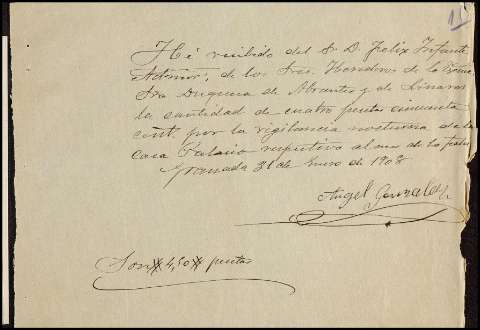 11
He recibido del Sr D. Felix Infante
Admor, de los Sres. Herederos de la Exma
Sra Duquesa de Abrantes y de Linares
la cantidad de cuatro pesetas cincuenta
cent. por la vigilancia nocturna de la
casa Palacio respectivo al mes de la fecha
Granada 31 de Enero de 1908
Angel Gonzalez
Son # 4,50 # pesetas